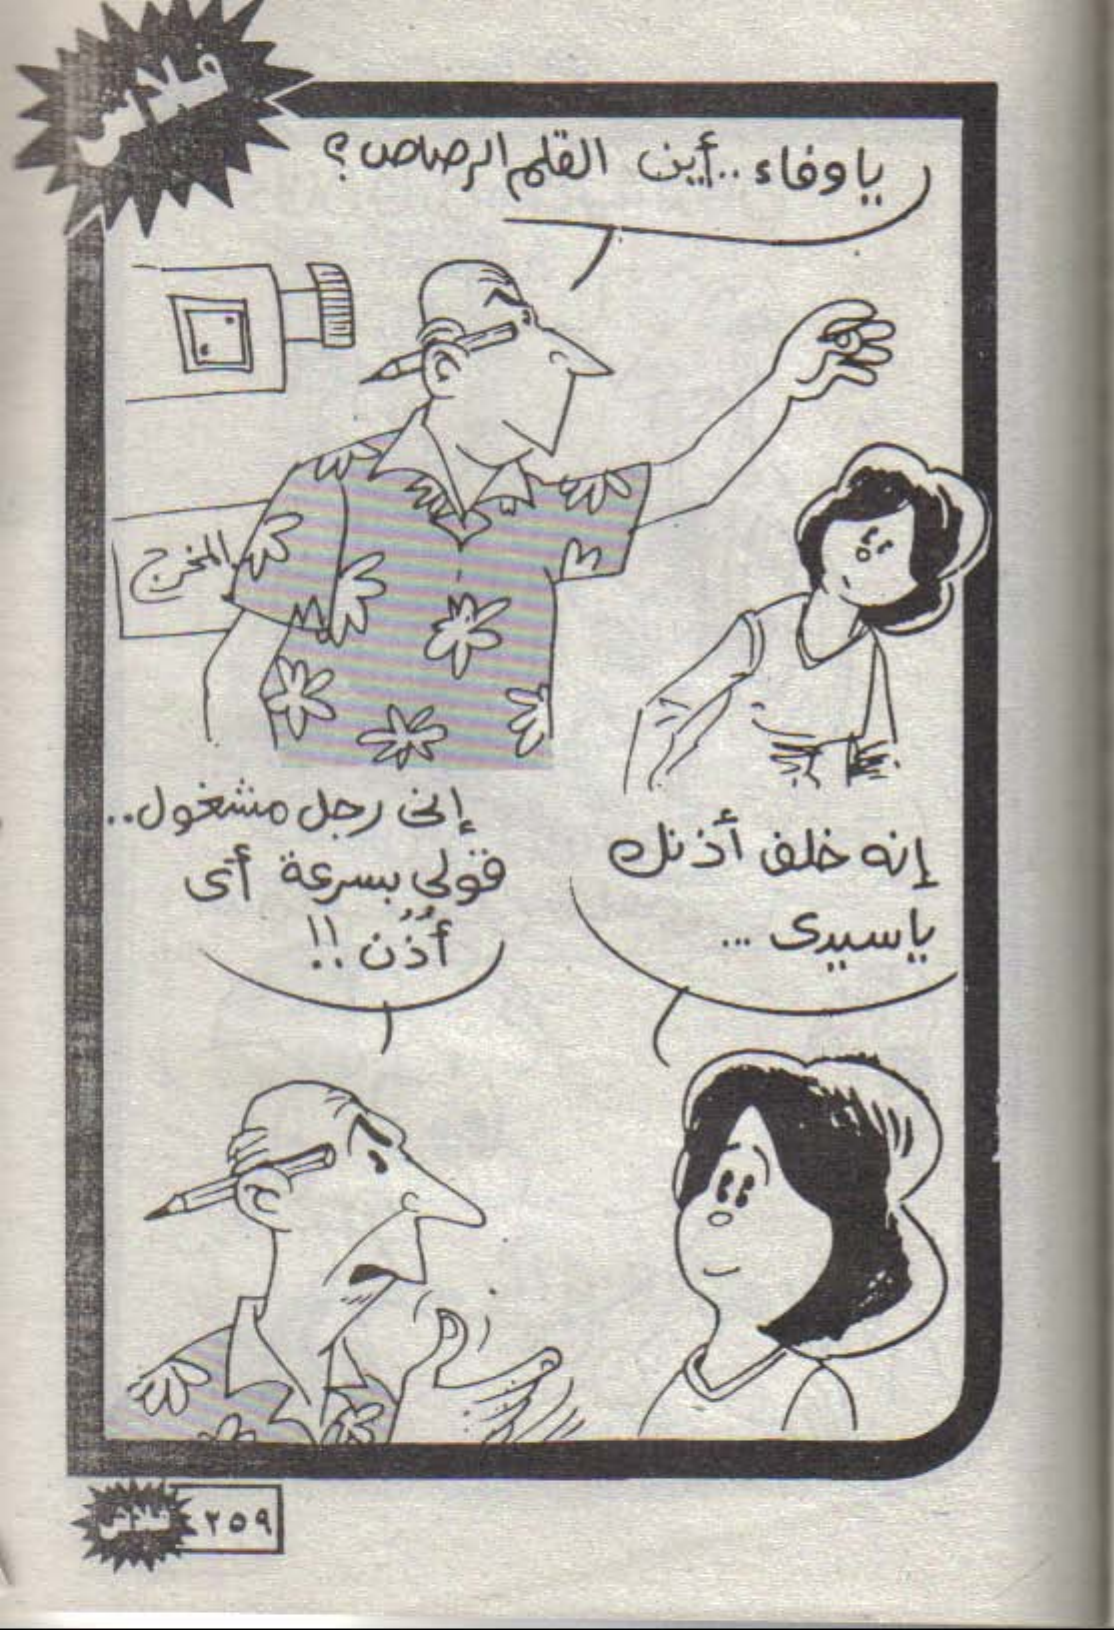 فلاش
ياوفاء..أين القلم الرصاص؟
المخرج
إنه خلف أذنك
ياسيدى ...
إنى رجل مشغول..
قولى بسرعة أى
أُذُن !!
فلاش ٢٥٩